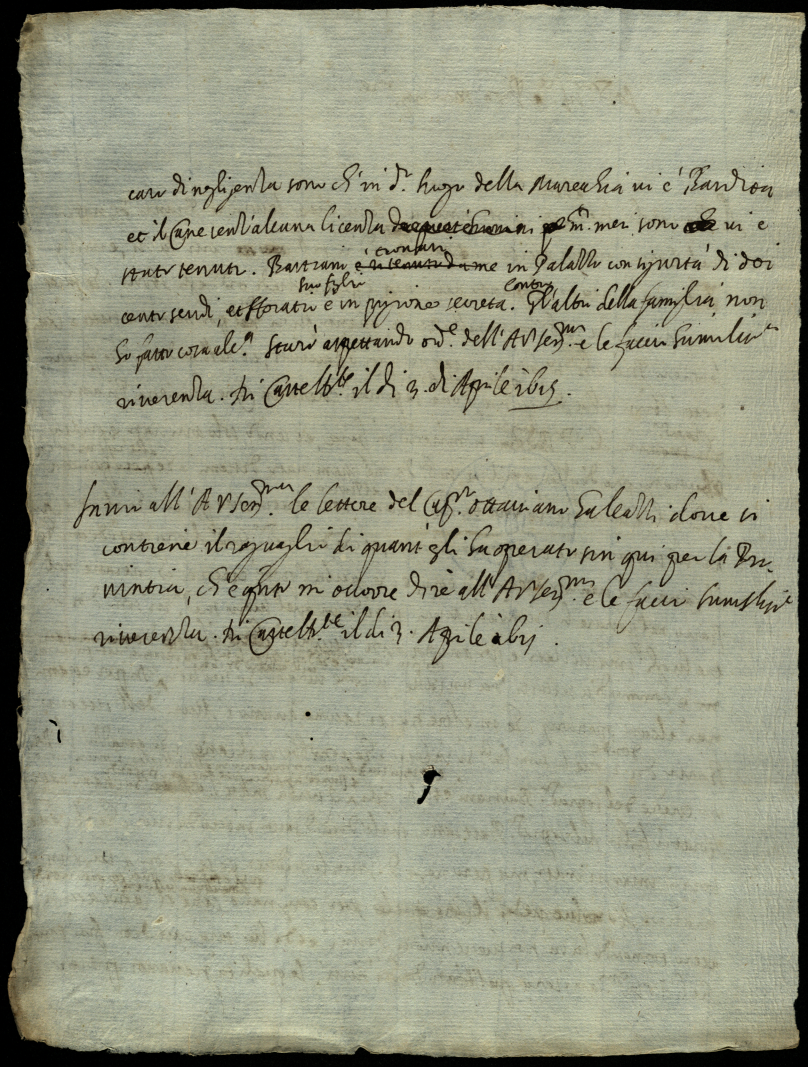 caro di negligenza sono ch'in d.º luogo della Marechia vi è Bandita
et il Cane senz'alcuna licenza mei sono vi e
stato tenuto. Bastiano è ritenuto da me in Palazzo con sigurtà di doi
cento scudi, et Horatio suo figlio è in prigione secreta. Contro Gl'altri della famiglia non
ho fatto cova le.ⁿ Starò aspettando ord.ᵉ dell'A V Ser.ᵐᵃ e le faccio humiliss.ᵃ
riverenza. Di Castelli.ᵗᵉ il di 3. di Aprile
Invio all'A V Ser.ᵐᵃ le lettere del Cap.ⁿ Ottaviano Galeazzi dove si
contiene il raguaglio di quant'egli ha operato sin qui per la Pro-
vintia, ch'è q.nto mi occorre dire all'A V Ser.ᵐᵃ e le faccio humiliss.ᵃ
riverenza. Di Castelli.ᵗᵉ il di 3. Aprile